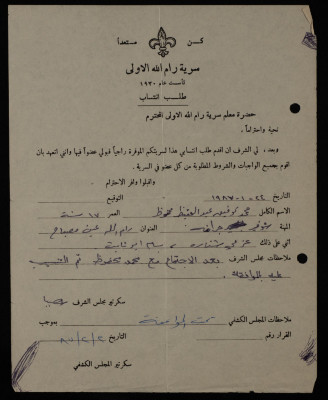 كن مستعداً
سرية رام الله الاولى
تأسست عام ١٩٣٠
طلب انتساب
حضرة معلم سرية رام الله الاولى المحترم
تحية واحتراماً ،
وبعد ، لي الشرف ان اقدم طلب انتسابي هذا لسريتكم الموقرة راجياً قبولي عضواً فيها واني اتعهد بأن
اقوم بجميع الواجبات والشروط المطلوبة من كل عضو في السرية .
واقبلوا وافر الاحترام
التاريخ التوقيع
الاسم الكامل محمد عبد الحفيظ محفوظ العمر ١٧ سنة
المهنة العنوان رام الله عين مصباح
اثني على ذلك
ملاحظات مجلس الشرف بعد الاجتماع مع محمد محفوظ تم
عليه بالموافقة .
سكرتير مجلس الشرف
ملاحظات المجلس الكشفي تمت الموافقة بموجب
القرار رقم التاريخ
سكرتير المجلس الكشفي